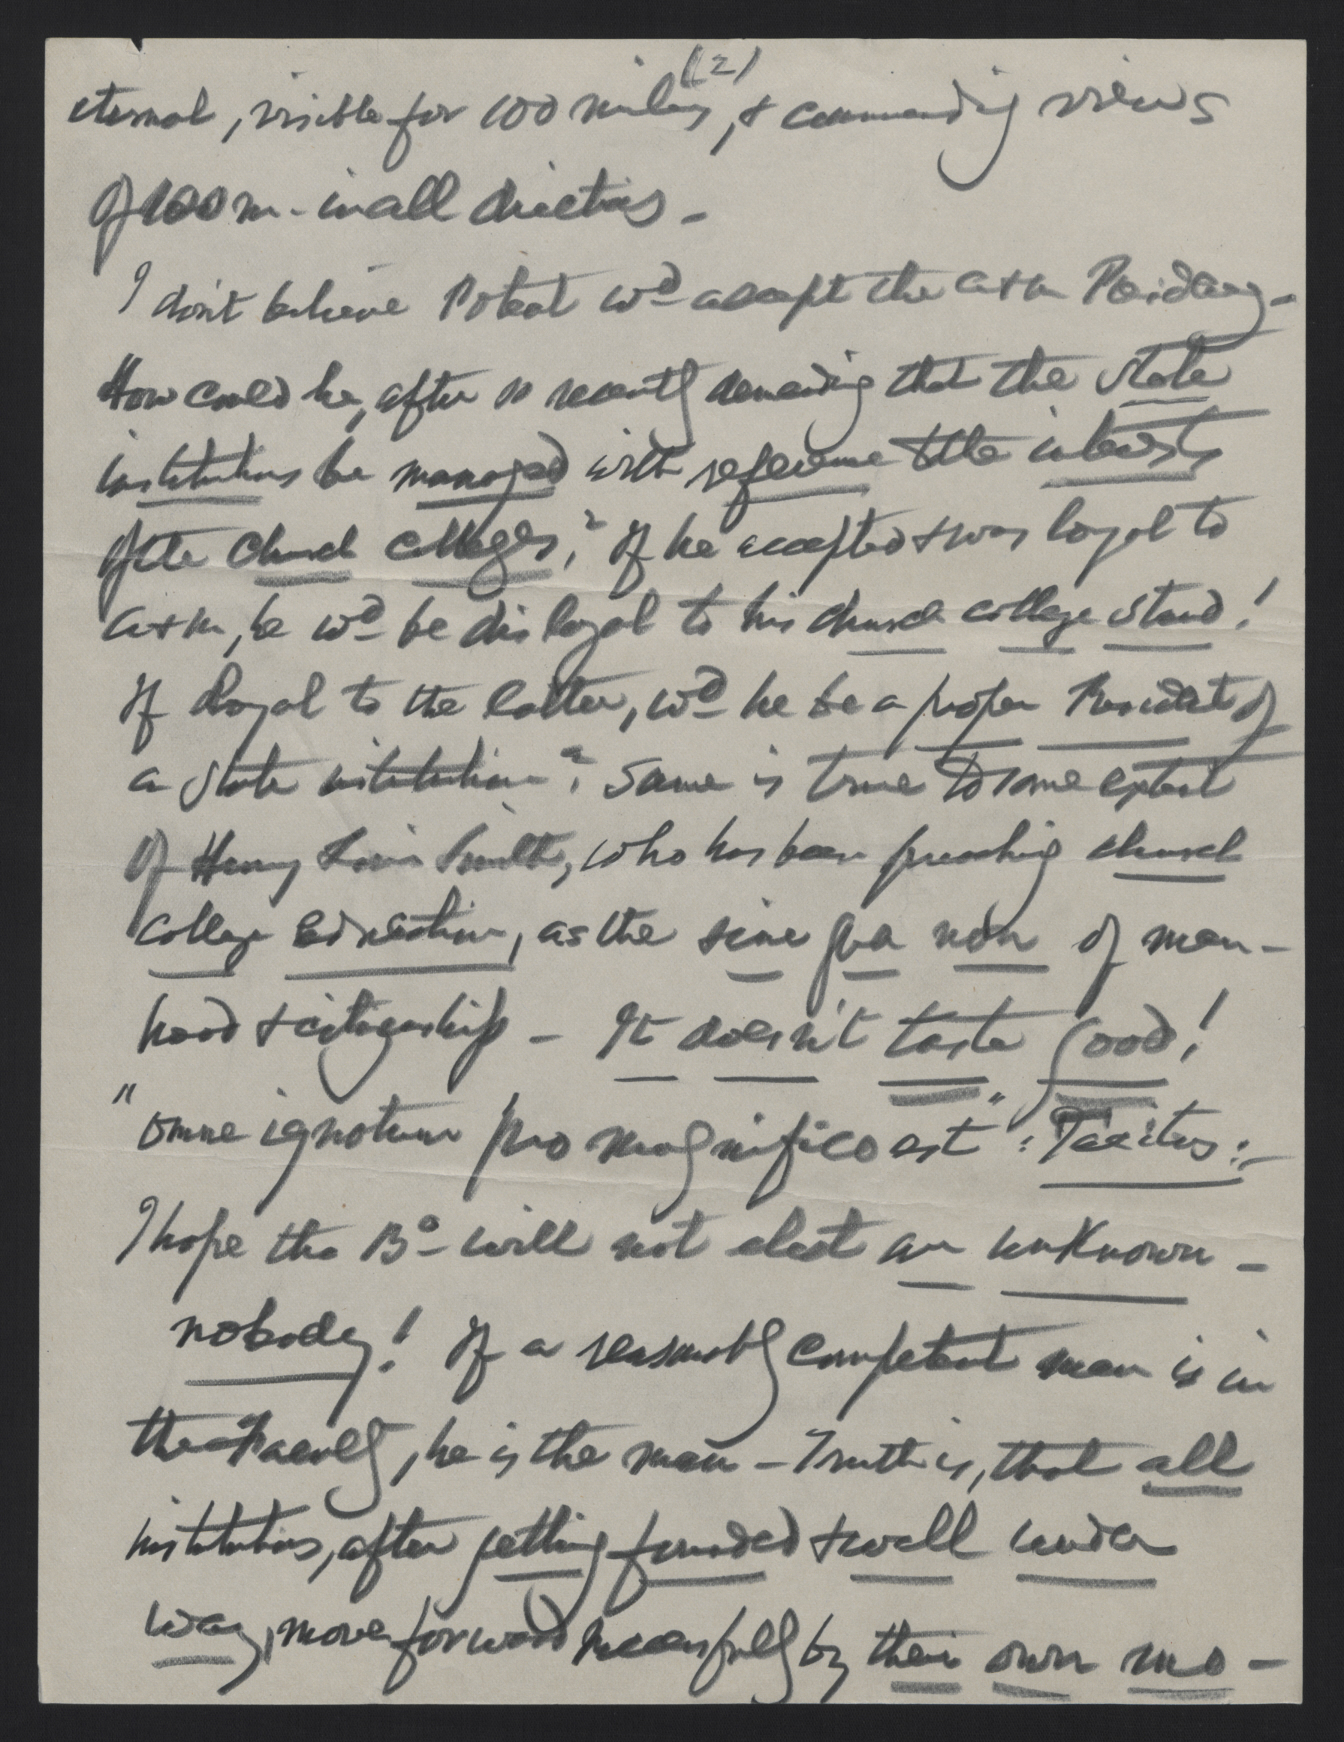 (2)
eternal, visible for 100 miles, & commanding views
of 100 m. in all directions -
I don't believe Poteat wd accept the A & M Presidency -
How could he, after so recently demanding that the state
institutions be managed with reference to the interests
of the church colleges,? If he accepted & was loyal to
A & M, he wd be disloyal to his church college stand!
If loyal to the latter, wd he be a proper President of
a State institution? Same is true to some extent
of Henry Louis Smith, who has been preaching church
college education, as the sine qua non of man-
hood & citizenship - It doesn't taste good!
"Omne ignotum pro magnifico est": Tacitus:-
I hope the Bd will not elect an unknown -
nobody! If a reasonably competent man is in
the Faculty, he is the man - Truth is, that all
institutions, after getting founded & well under
way, move forward successfully by their own mo-